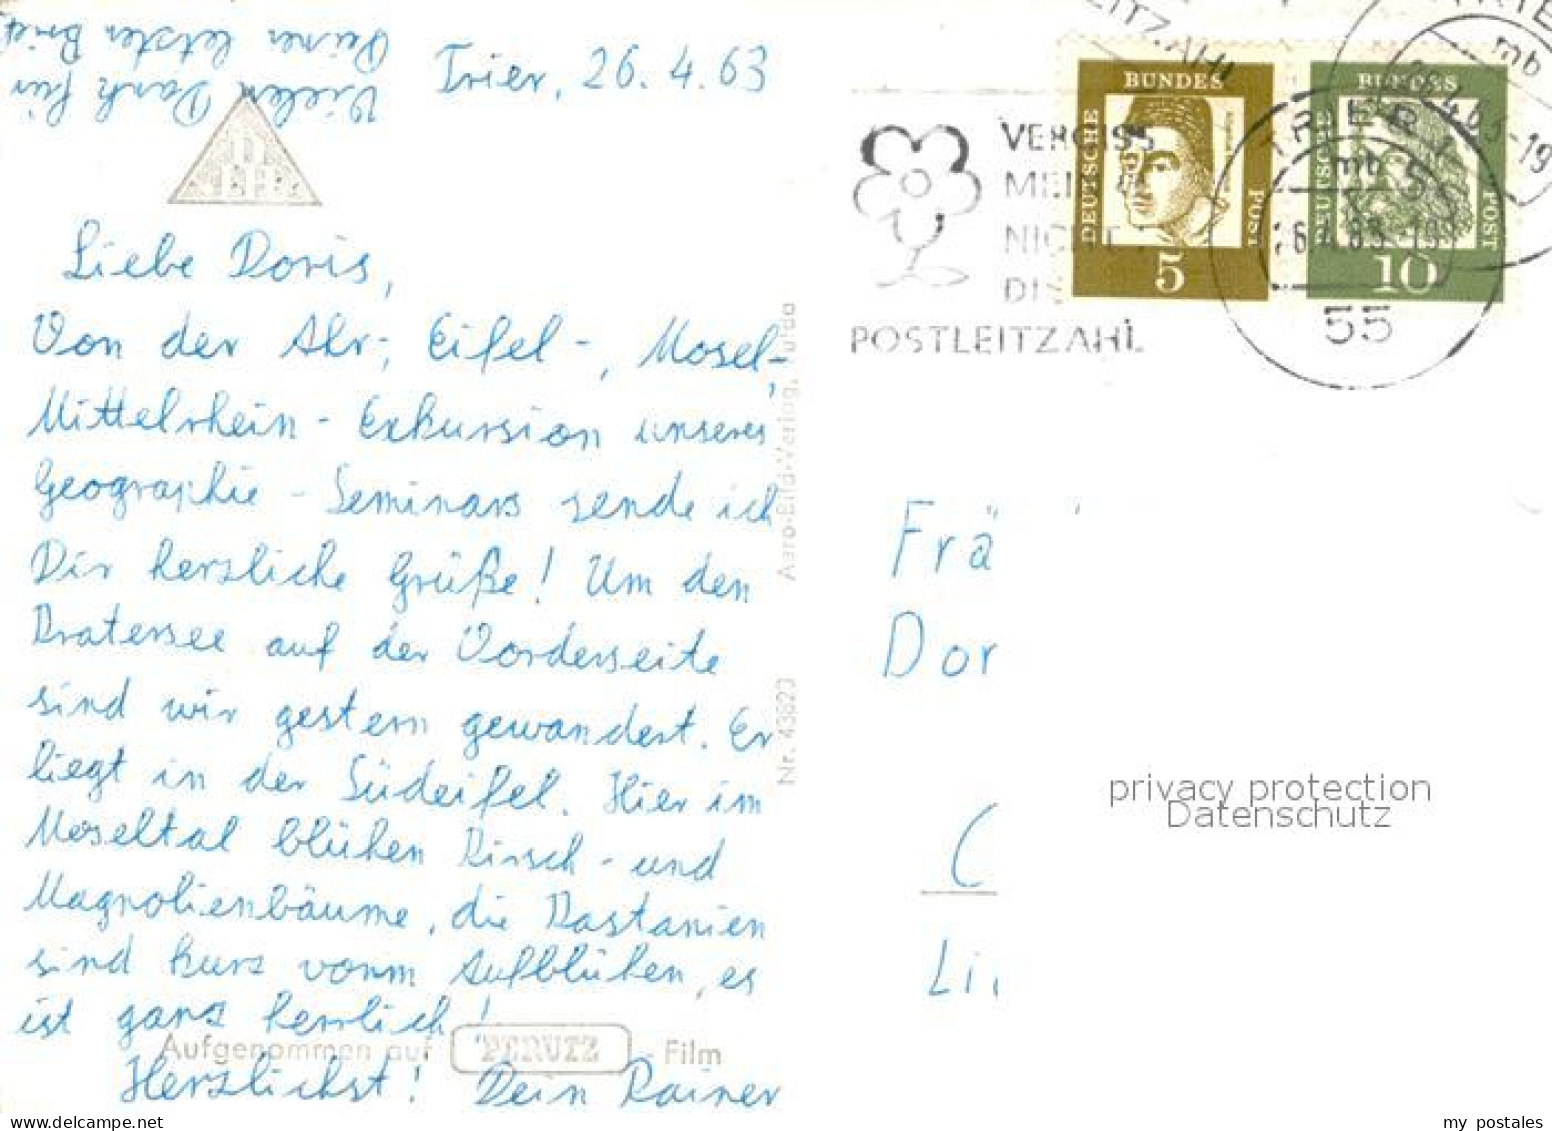 Vielen Dank für
Deinen letzten Brief
Trier, 26.4.63
Liebe Doris,
Von der Ahr-, Eifel-, Mosel-,
Mittelrhein-Exkursion unseres
Geographie-Seminars sende ich
Dir herzliche Grüße! Um den
Kratersee auf der Vorderseite
sind wir gestern gewandert. Er
liegt in der Südeifel. Hier im
Moseltal blühen Kirsch- und
Magnolienbäume, die Kastanien
sind kurz vorm Aufblühen, es
ist ganz herrlich!
Herzlichst! Dein Rainer
Aufgenommen auf PERUTZ-Film
Aero-Bild-Verlag, Fulda
Nr. 43823
VERGISS
MEIN
NICHT
DIE
POSTLEITZAHL
LEITZAHL
DEUTSCHE BUNDESPOST
5
DEUTSCHE BUNDESPOST
10
TRIER 1
mb 5
26.4.63-19
55
TRIE
mb
26.4.63-19
Frä
Dor
Li
privacy protection
Datenschutz
my postales